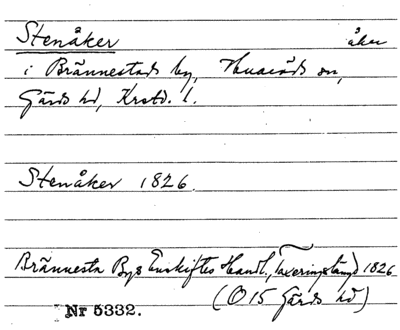 Stenåker åker
i Brännestads by, Huaröds sn,
Gärds hd, Krstd. l.
Stenåker 1826.
Brännesta Bys Enskiftes Handl., Taxeringslängd 1826
(O 15 Gärds hd)
Nr 5332.